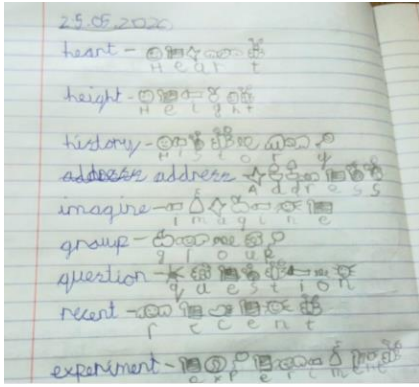 25.05.2020
heart - H e a r t
height - H e i g h t
history - H i s t o r y
address address - A d d r e s s
imagine - i m a g i n e
group - g r o u p
question - q u e s t i o n
recent - r e c e n t
experiment - e x p e r i m e n t